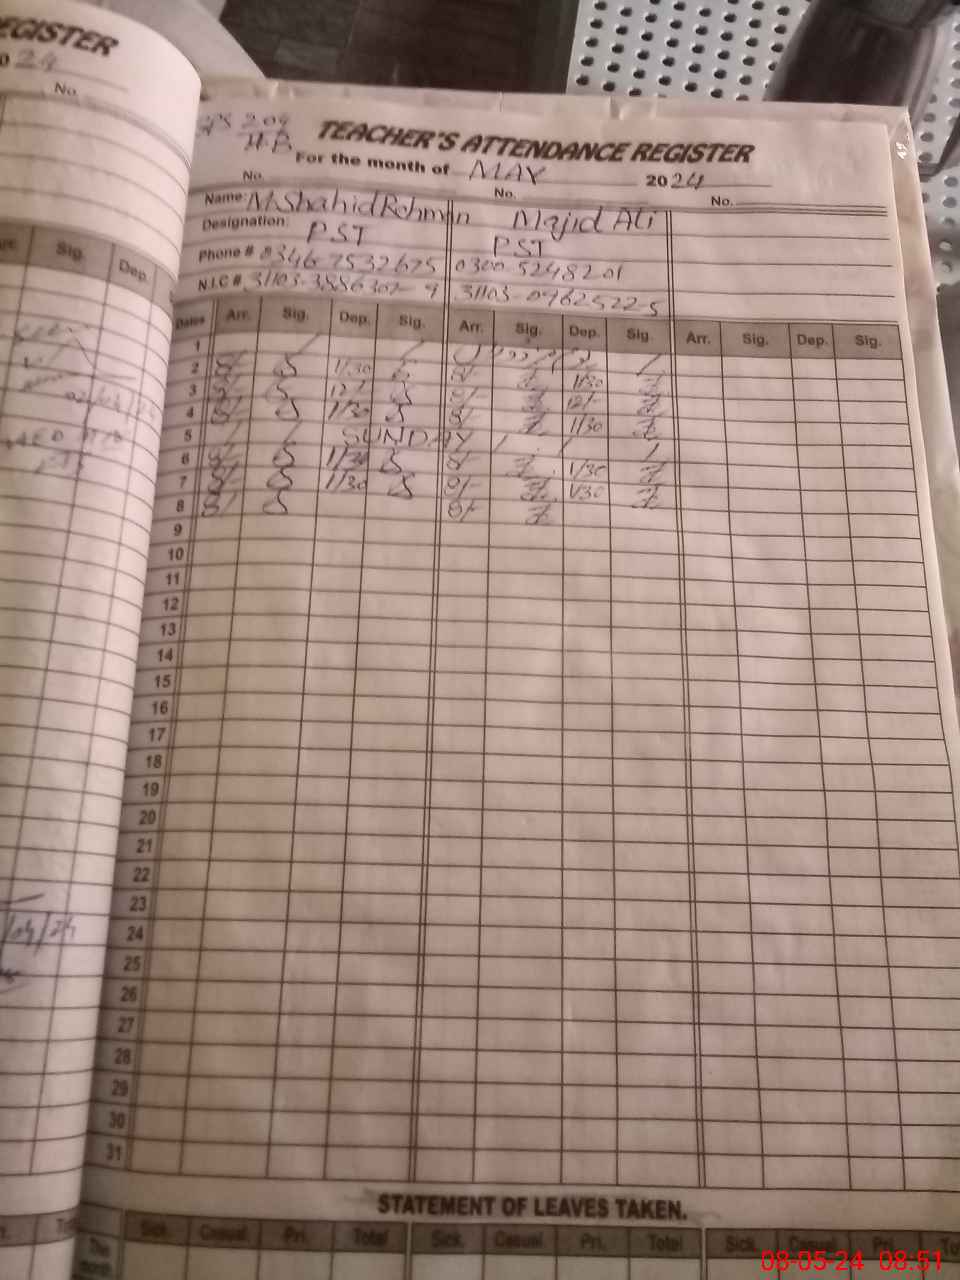 EGISTER
024
No.
GPS 209
H-B
TEACHER'S ATTENDANCE REGISTER
For the month of MAY 2024
No. No. No.
Name: M.Shahid Rehman Majid Ali
Designation: PST PST
Phone # 0346-7532675 0300 5248201
N.I.C # 31103-3886302-9 31103-0962522-5
Dates Arr. Sig. Dep. Sig. Arr. Sig. Dep. Sig. Arr. Sig. Dep. Sig.
Sig. Dep.
1
2 8/- 1/30 8/- 1/30
3 8/- 12/- 8/- 12/-
4 8/- 1/30 8/- 1/30
5 SUNDAY
6 8/- 1/30 8/- 1/30
7 8/- 1/30 8/- 1/30
8 8/- 8/-
9
10
11
12
13
14
15
16
17
18
19
20
21
22
23
24
25
26
27
28
29
30
31
STATEMENT OF LEAVES TAKEN.
Sick. Casual Pri. Total Sick. Casual Pri. Total Sick. Casual Pri. To
This month
08-05-24 08:51